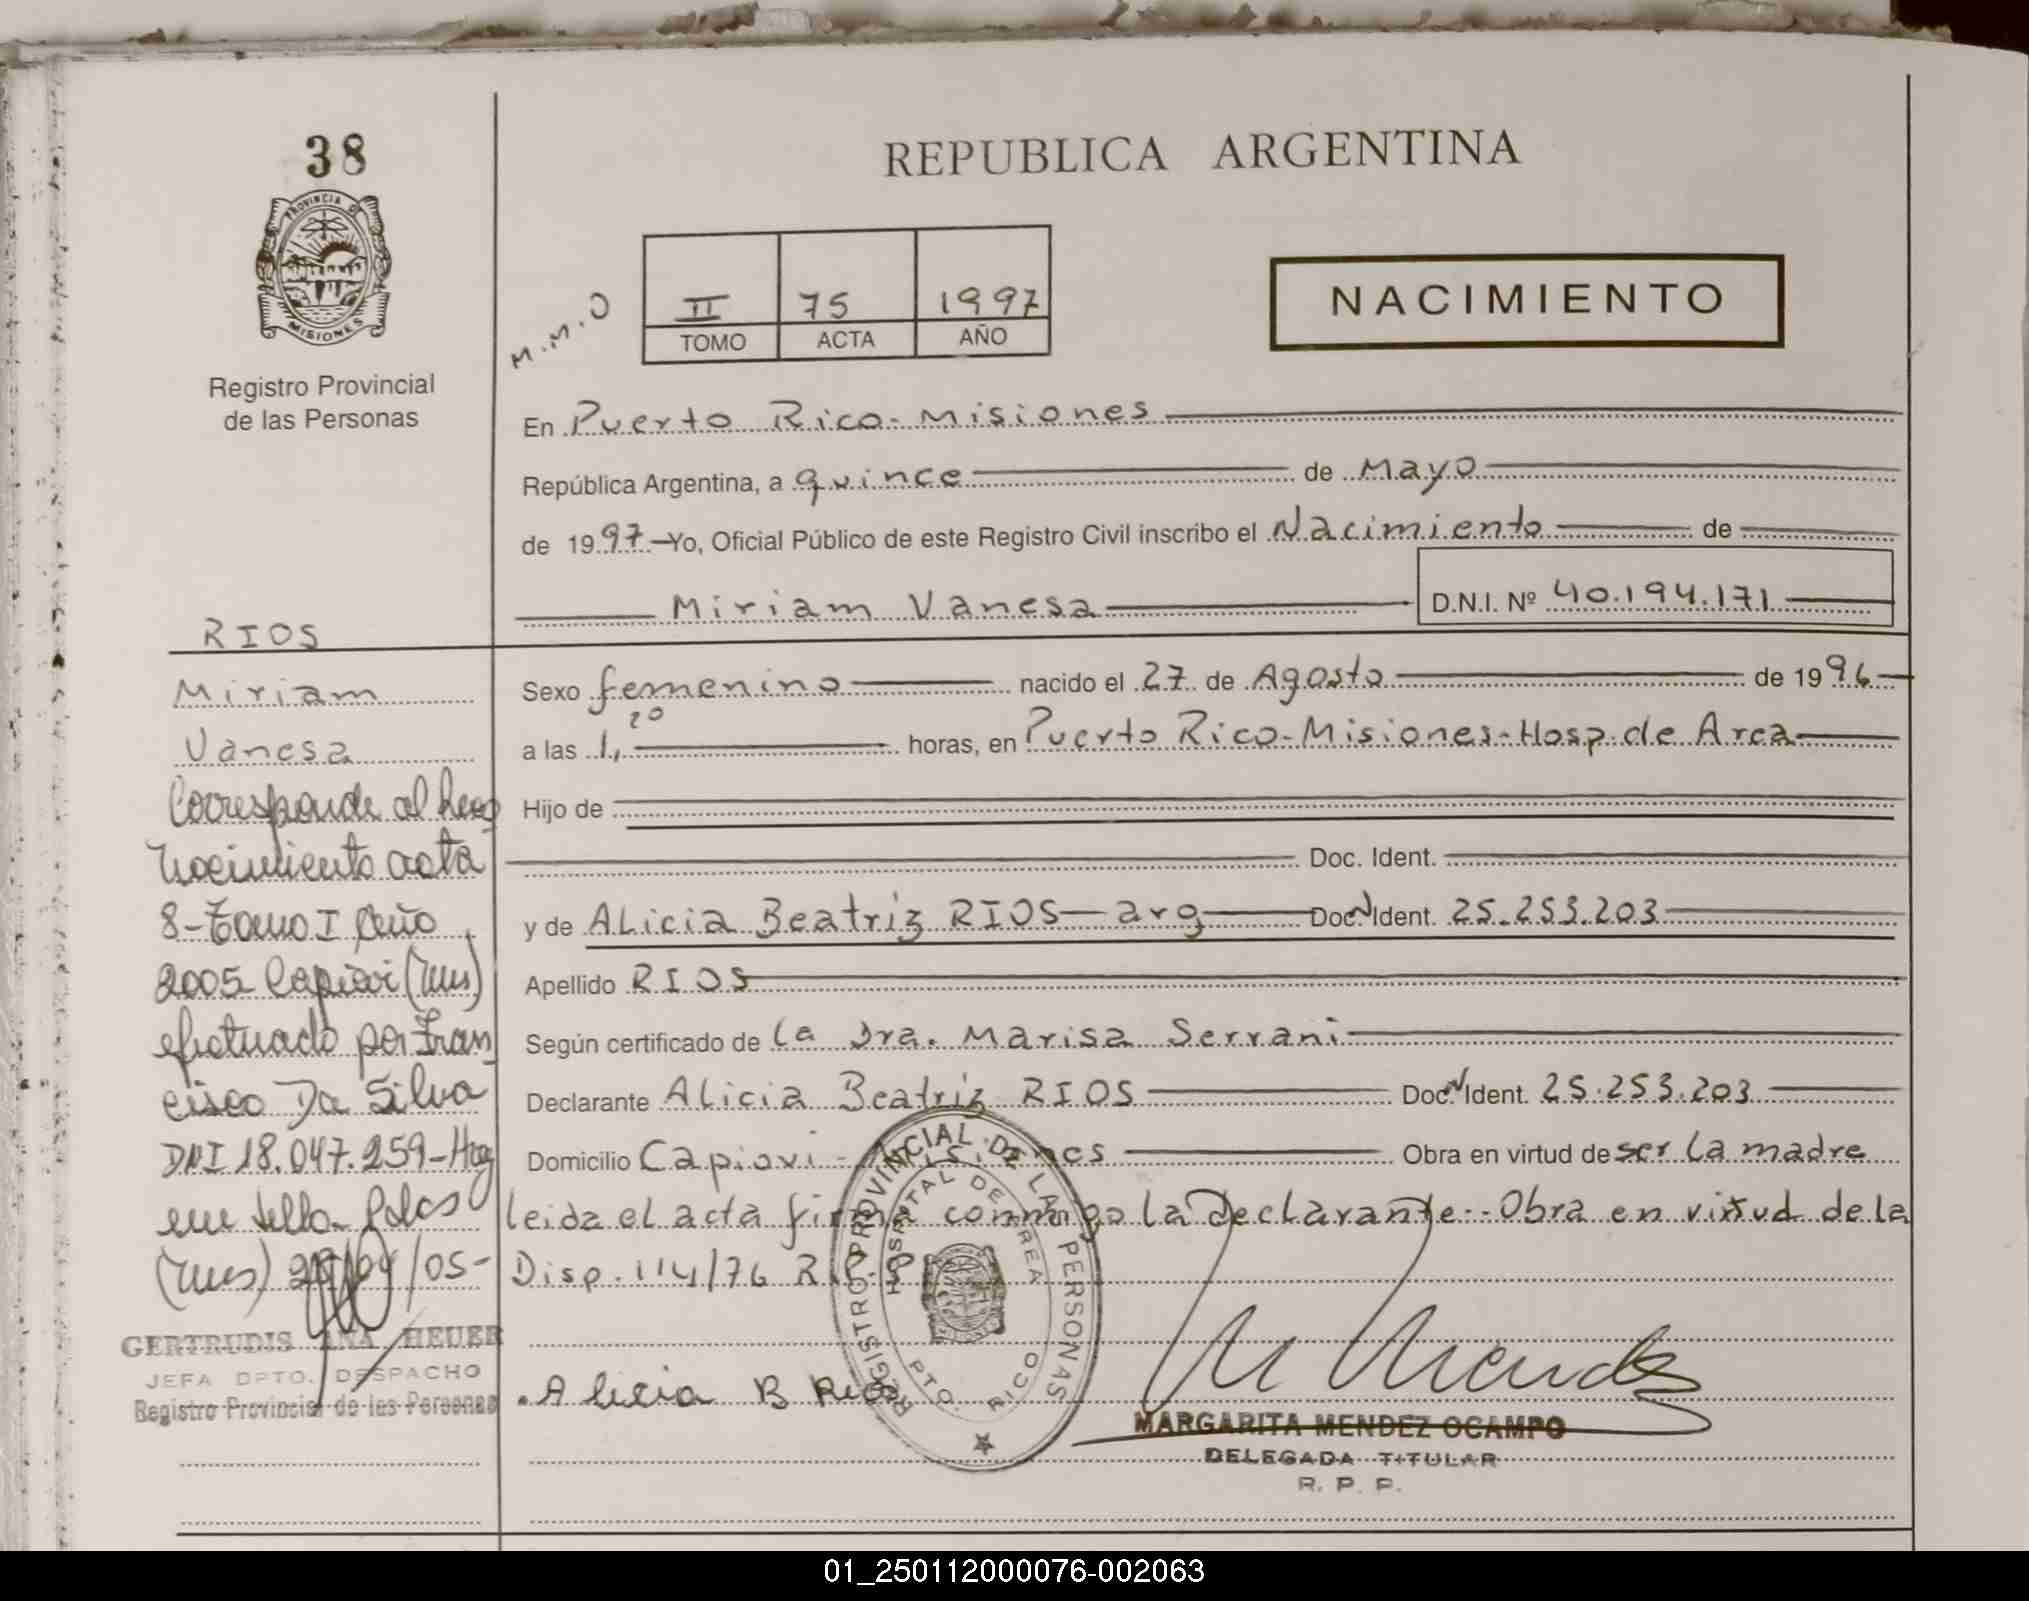 38
PROVINCIA DE
MISIONES
Registro Provincial
de las Personas
RIOS
Miriam
Vanesa
Corresponde al Recog
Nocimiento acta
8-Tomo I Año
2005 Capiovi (Mns)
efectuado por Fran
cisco Da Silva
DNI 18.047.259-Hag
(Mns) /05-
GERTRUDIS ANA HEUER
JEFA DPTO. DESPACHO
Registro Provincial de las Personas
REPUBLICA ARGENTINA
M.M.O
II 75 1997
TOMO ACTA AÑO
NACIMIENTO
En Puerto Rico-Misiones
República Argentina, a quince de Mayo
de 1997-Yo, Oficial Público de este Registro Civil inscribo el Nacimiento de
Miriam Vanesa D.N.I. Nº 40.194.171
Sexo femenino nacido el 27 de Agosto de 1996
a las 1,20 horas, en Puerto Rico-Misiones-Hosp.de Area
Hijo de
Doc. Ident.
y de ALicia Beatriz RIOS-arg Doc.N Ident. 25.253.203
Apellido RIOS
Según certificado de La Dra. Marisa Serrani
Declarante ALicia Beatriz RIOS Doc.N Ident. 25.253.203
Domicilio Capiovi-Misiones Obra en virtud de ser La madre
leida el acta firma conmigo la Declarante-Obra en virtud de la
Disp.114/76 R.P.P
REGISTRO PROVINCIAL DE LAS PERSONAS
HOSPITAL DE AREA
PTO. RICO
Alicia B Rios
M Mendez
MARGARITA MENDEZ OCAMPO
DELEGADA TITULAR
R. P. P.
01_250112000076-002063